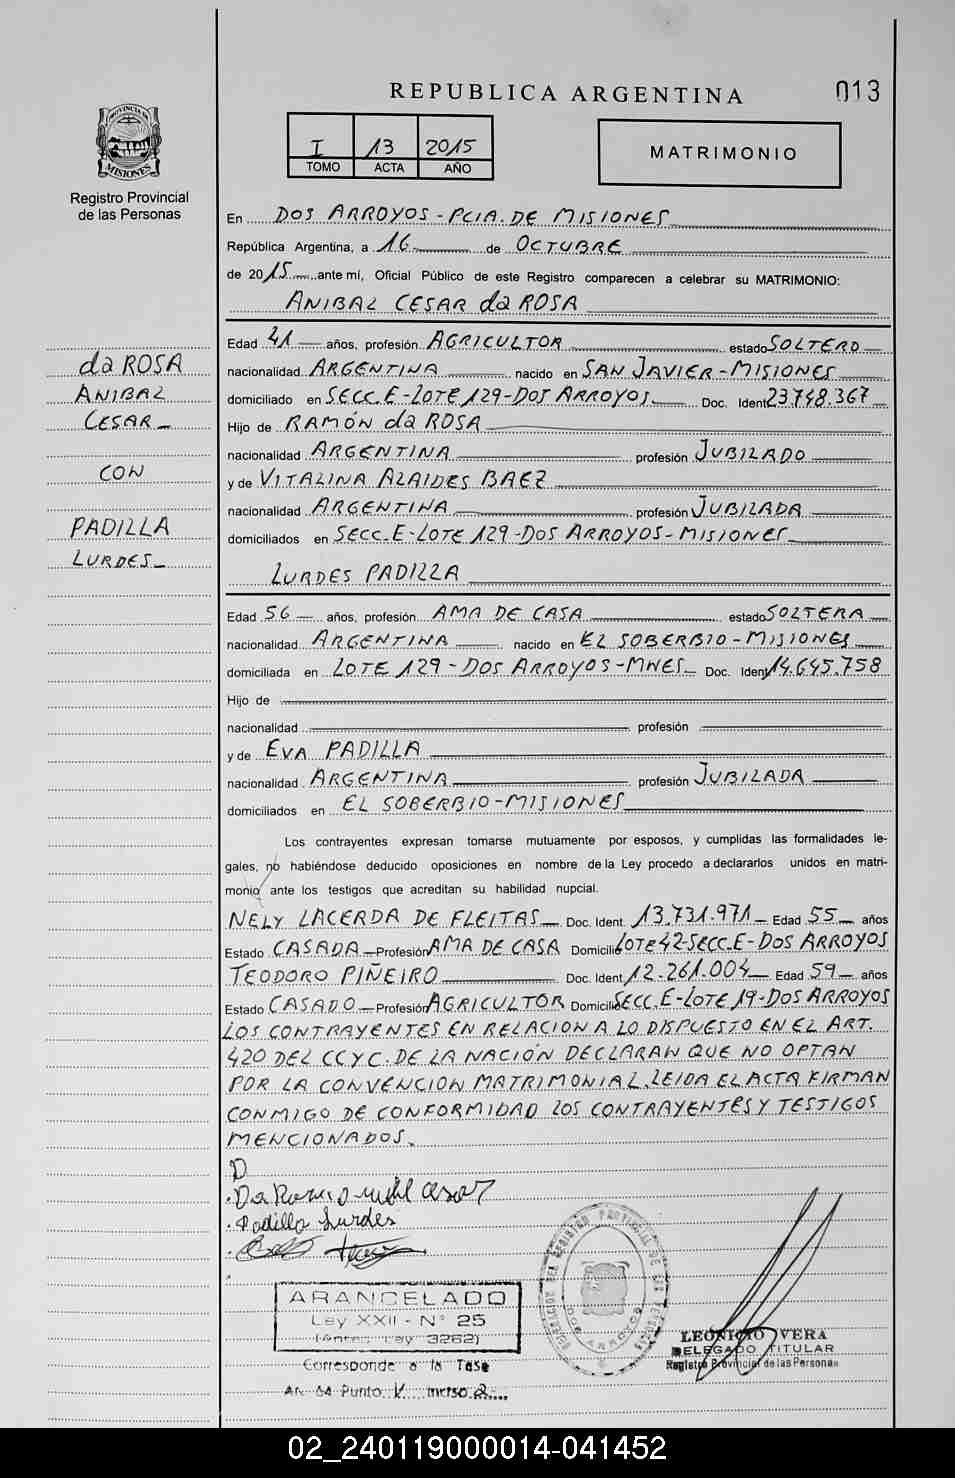 REPUBLICA ARGENTINA
013
I 13 2015
TOMO ACTA AÑO
MATRIMONIO
PROVINCIA DE MISIONES
Registro Provincial
de las Personas
En DOS ARROYOS - PCIA. DE MISIONES
República Argentina, a 16 de OCTUBRE
de 2015 ante mí, Oficial Público de este Registro comparecen a celebrar su MATRIMONIO:
ANIBAL CESAR da ROSA
da ROSA
ANIBAL
CESAR
CON
PADILLA
LURDES
Edad 41 años, profesión AGRICULTOR estado SOLTERO
nacionalidad ARGENTINA nacido en SAN JAVIER - MISIONES
domiciliado en SECC. E - LOTE 129 - DOS ARROYOS Doc. Ident 23.748.367
Hijo de RAMÓN da ROSA
nacionalidad ARGENTINA profesión JUBILADO
y de VITALINA ALAIDES BAEZ
nacionalidad ARGENTINA profesión JUBILADA
domiciliados en SECC. E - LOTE 129 - DOS ARROYOS - MISIONES
LURDES PADILLA
Edad 56 años, profesión AMA DE CASA estado SOLTERA
nacionalidad ARGENTINA nacido en EL SOBERBIO - MISIONES
domiciliada en LOTE 129 - DOS ARROYOS - MNES Doc. Ident 14.645.758
Hijo de
nacionalidad profesión
y de EVA PADILLA
nacionalidad ARGENTINA profesión JUBILADA
domiciliados en EL SOBERBIO - MISIONES
Los contrayentes expresan tomarse mutuamente por esposos, y cumplidas las formalidades le-
gales, no habiéndose deducido oposiciones en nombre de la Ley procedo a declararlos unidos en matri-
monio ante los testigos que acreditan su habilidad nupcial.
NELY LACERDA DE FLEITAS Doc. Ident. 13.731.971 Edad 55 años
Estado CASADA Profesión AMA DE CASA Domicilio LOTE 42 - SECC. E - DOS ARROYOS
TEODORO PIÑEIRO Doc. Ident 12.261.004 Edad 59 años
Estado CASADO Profesión AGRICULTOR Domicilio SECC. E - LOTE 19 - DOS ARROYOS
LOS CONTRAYENTES EN RELACION A LO DISPUESTO EN EL ART.
420 DEL CCYC. DE LA NACIÓN DECLARAN QUE NO OPTAN
POR LA CONVENCION MATRIMONIAL. LEIDA EL ACTA FIRMAN
CONMIGO DE CONFORMIDAD LOS CONTRAYENTES Y TESTIGOS
MENCIONADOS.
Padilla Lurdes
ARANCELADO
Ley XXII - N° 25
(Antes Ley 3262)
Corresponde a la Tasa
DOS ARROYOS
LEONICIO VERA
DELEGADO TITULAR
Registro Provincial de las Personas
02_240119000014-041452